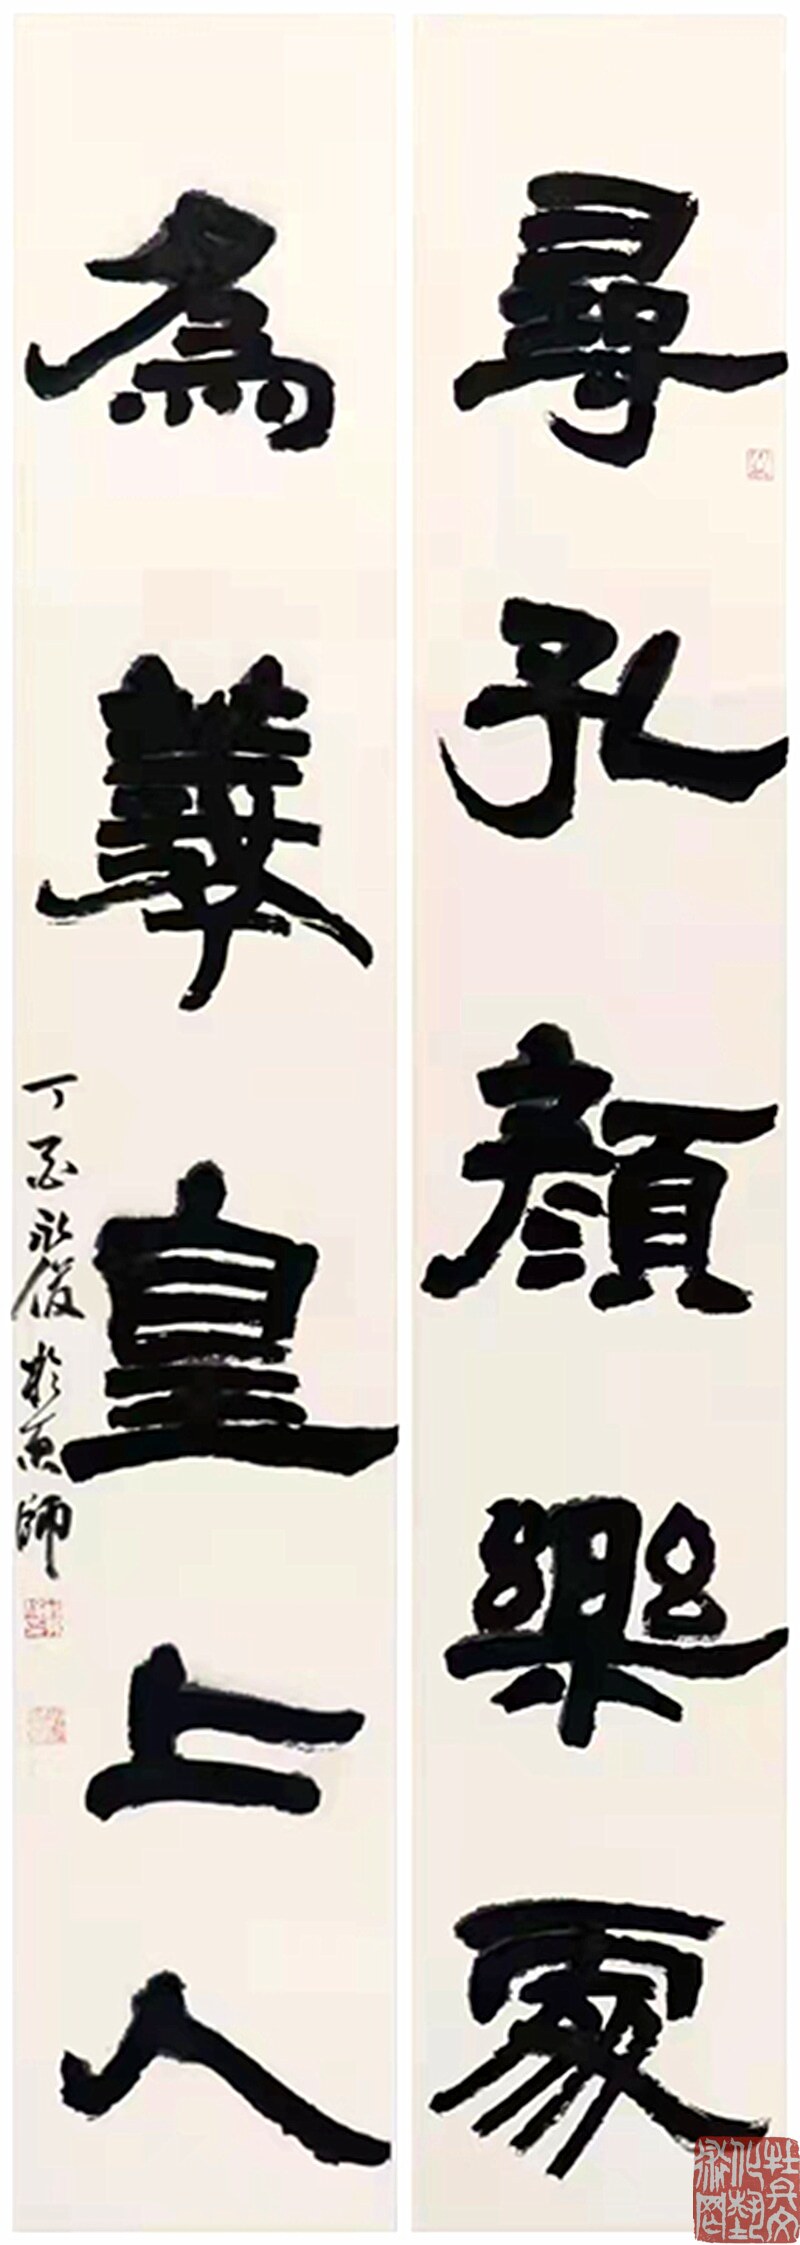 尋孔顏樂處
為羲皇上人
丁酉永俊於京師